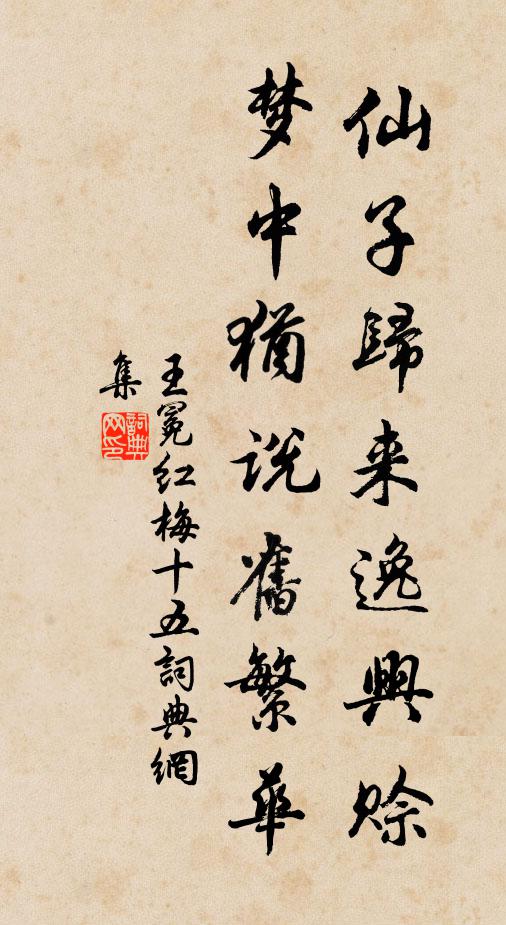 仙子歸来逸興賒
梦中猶说舊繁華
王冕红梅十五詞典網
集
詞典
网印